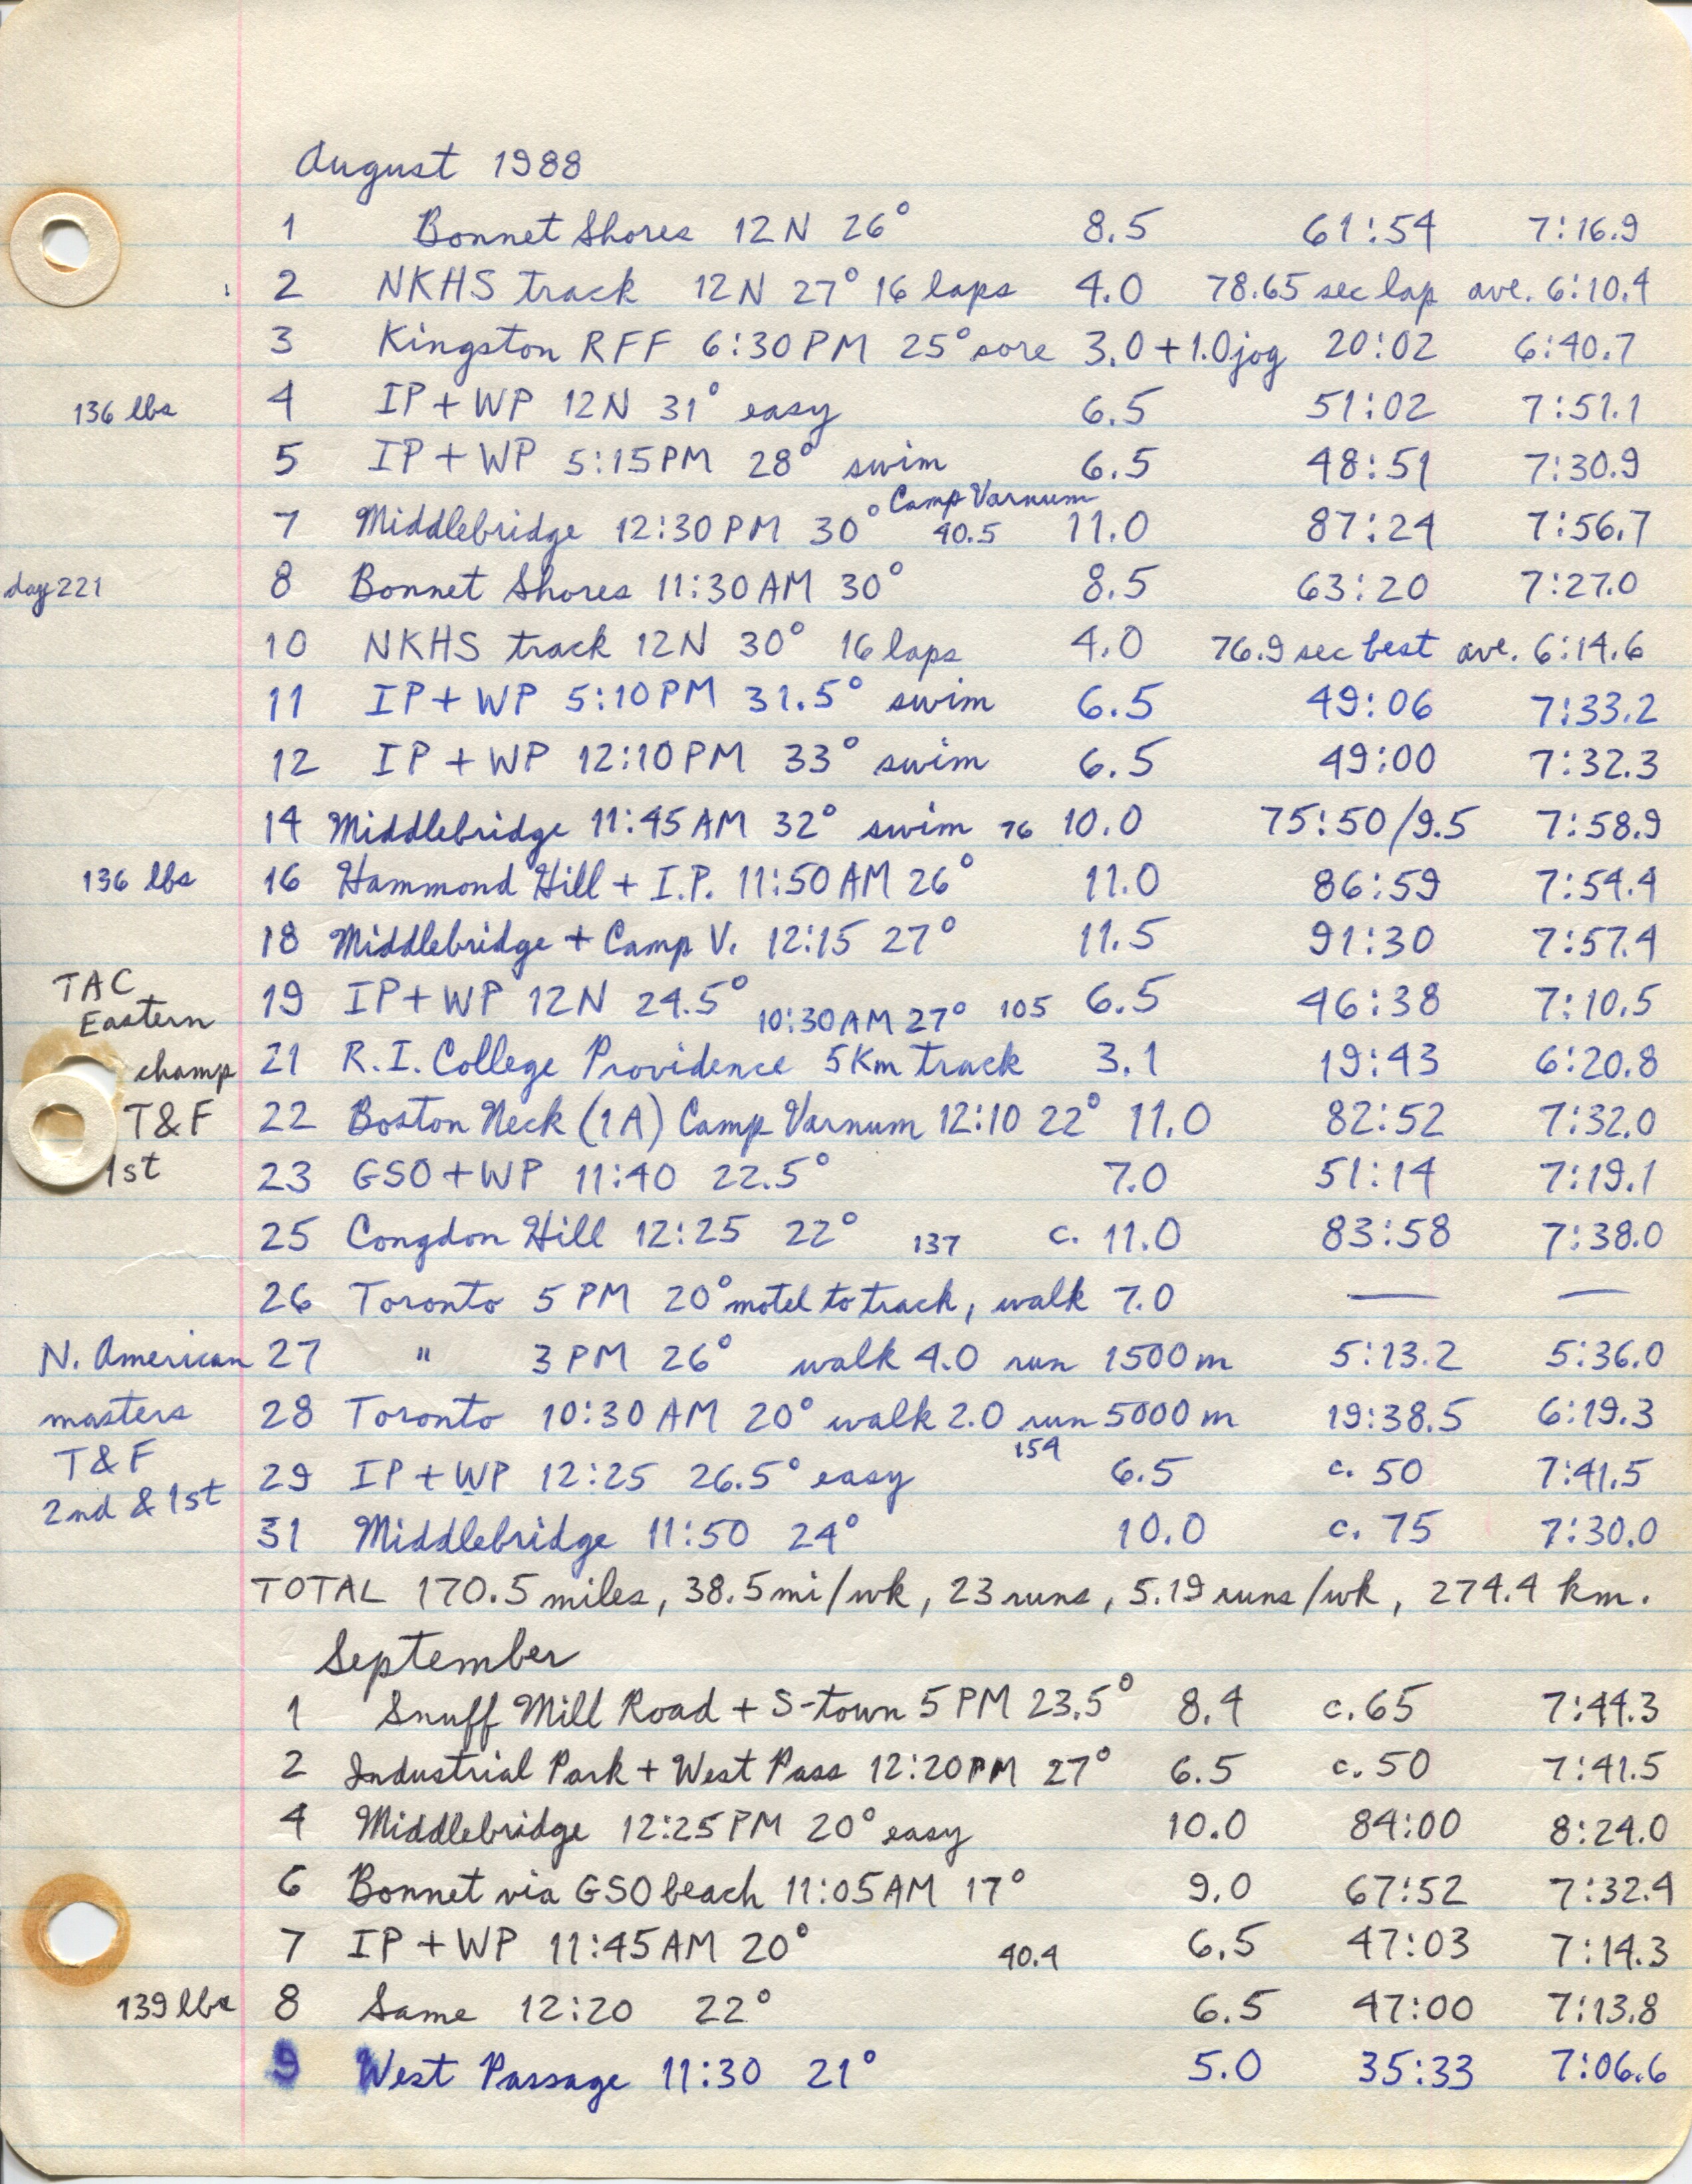 August 1988
1 Bonnet Shores 12N 26° 8.5 61:54 7:16.9
2 NKHS track 12N 27° 16 laps 4.0 78.65 sec lap ave. 6:10.4
3 Kingston RFF 6:30PM 25° sore 3.0+1.0jog 20:02 6:40.7
136 lbs 4 IP+WP 12N 31° easy 6.5 51:02 7:51.1
5 IP+WP 5:15PM 28° swim 6.5 48:51 7:30.9
7 Middlebridge 12:30PM 30° Camp Varnum 40.5 11.0 87:24 7:56.7
day 221 8 Bonnet Shores 11:30AM 30° 8.5 63:20 7:27.0
10 NKHS track 12N 30° 16 laps 4.0 76.9 sec best ave. 6:14.6
11 IP+WP 5:10PM 31.5° swim 6.5 49:06 7:33.2
12 IP+WP 12:10PM 33° swim 6.5 49:00 7:32.3
14 Middlebridge 11:45AM 32° swim 76 10.0 75:50/9.5 7:58.9
136 lbs 16 Hammond Hill + I.P. 11:50AM 26° 11.0 86:59 7:54.4
18 Middlebridge + Camp V. 12:15 27° 11.5 91:30 7:57.4
TAC Eastern 19 IP+WP 12N 24.5° 105 6.5 46:38 7:10.5
10:30AM 27°
champ 21 R.I. College Providence 5Km track 3.1 19:43 6:20.8
T&F 22 Boston Neck (1A) Camp Varnum 12:10 22° 11.0 82:52 7:32.0
1st 23 GSO+WP 11:40 22.5° 7.0 51:14 7:19.1
25 Congdon Hill 12:25 22° 137 c. 11.0 83:58 7:38.0
26 Toronto 5 PM 20° motel to track, walk 7.0 — —
N. American 27 " 3 PM 26° walk 4.0 run 1500m 5:13.2 5:36.0
masters 28 Toronto 10:30AM 20° walk 2.0 run 5000m 19:38.5 6:19.3
T&F 29 IP+WP 12:25 26.5° easy 154 6.5 c. 50 7:41.5
2nd & 1st 31 Middlebridge 11:50 24° 10.0 c. 75 7:30.0
TOTAL 170.5 miles, 38.5mi/wk, 23 runs, 5.19 runs/wk, 274.4 km.
September
1 Snuff Mill Road + S-town 5PM 23.5° 8.4 c. 65 7:44.3
2 Industrial Park + West Pass 12:20PM 27° 6.5 c. 50 7:41.5
4 Middlebridge 12:25PM 20° easy 10.0 84:00 8:24.0
6 Bonnet via GSO beach 11:05AM 17° 9.0 67:52 7:32.4
7 IP+WP 11:45AM 20° 40.4 6.5 47:03 7:14.3
139 lbs 8 Same 12:20 22° 6.5 47:00 7:13.8
9 West Passage 11:30 21° 5.0 35:33 7:06.6